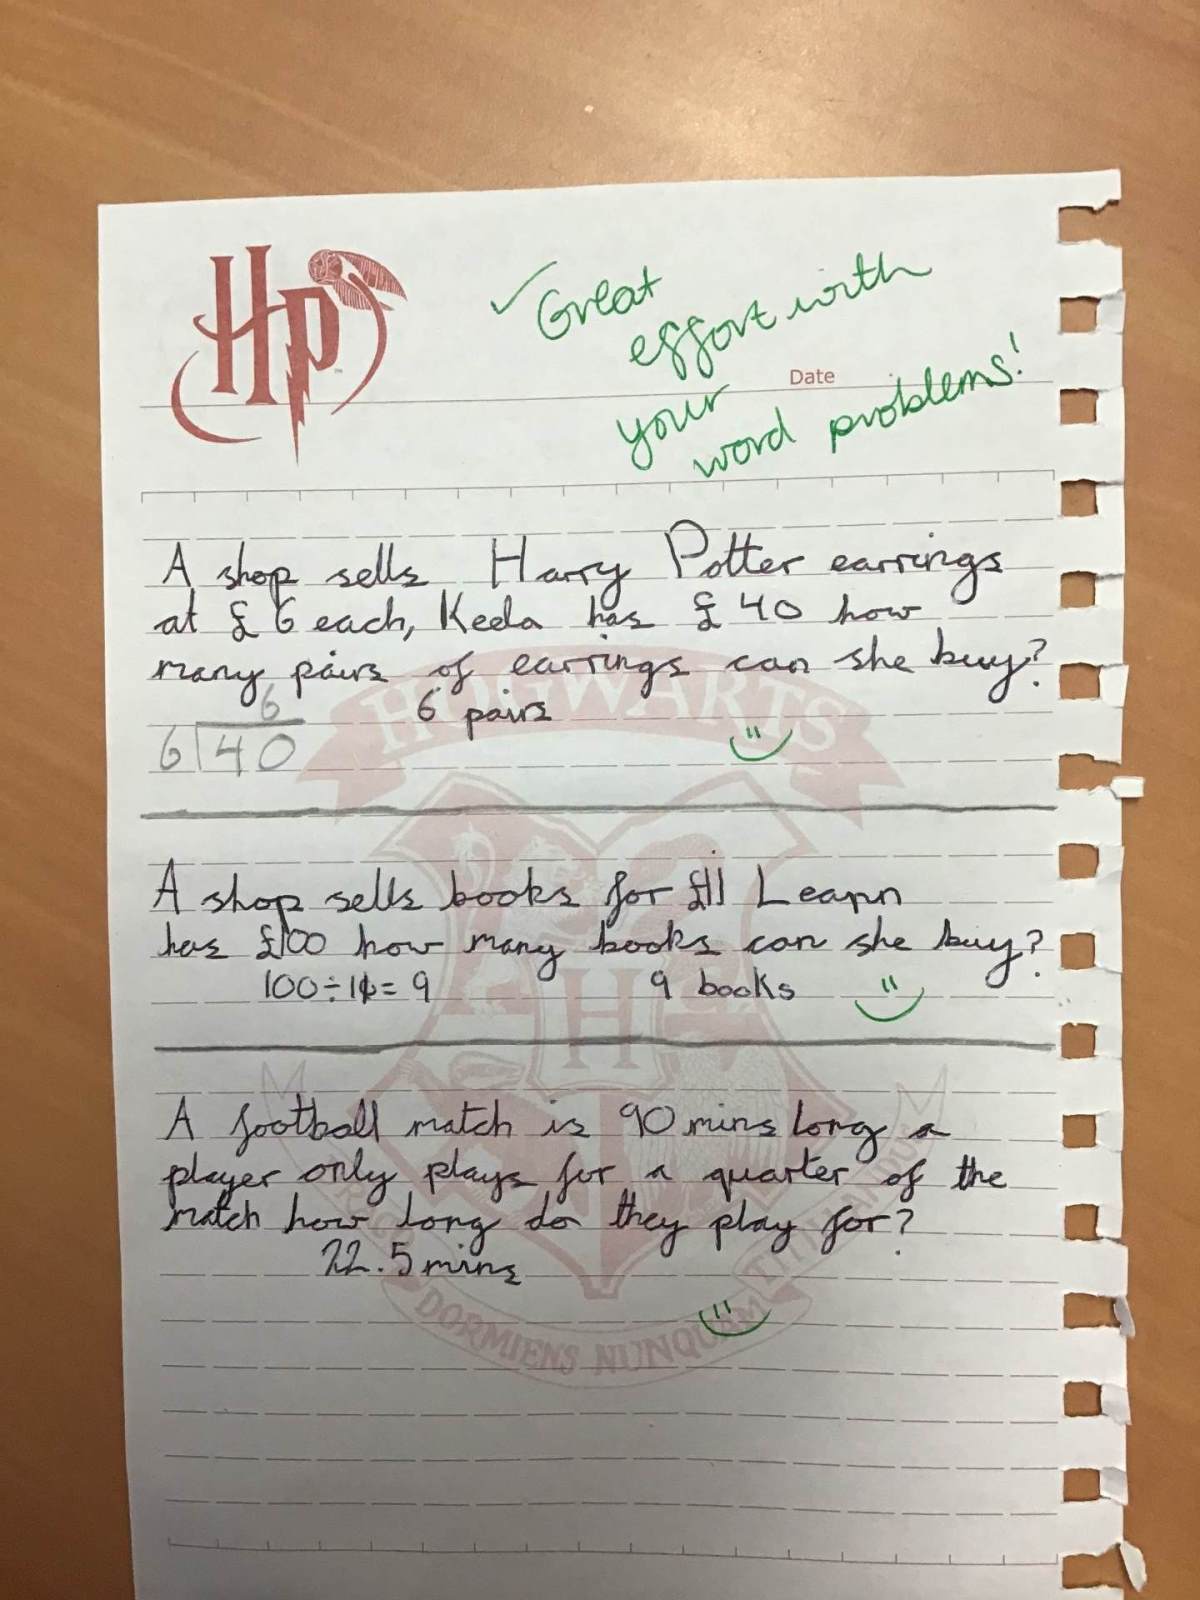 HP
✓ Great
effort with
Date
your
word problems!
A shop sells Harry Potter earrings
at £6 each, Keela has £40 how
many pairs of earrings can she buy?
6
6 pairs
6 40
HOGWARTS
A shop sells books for £11 Leann
has £100 how many books can she buy?
100÷11=9
9 books
H
A football match is 90 mins long a
player only plays for a quarter of the
match how long do they play for?
22.5 mins
DORMIENS NUNQUAM TITILLANDUS